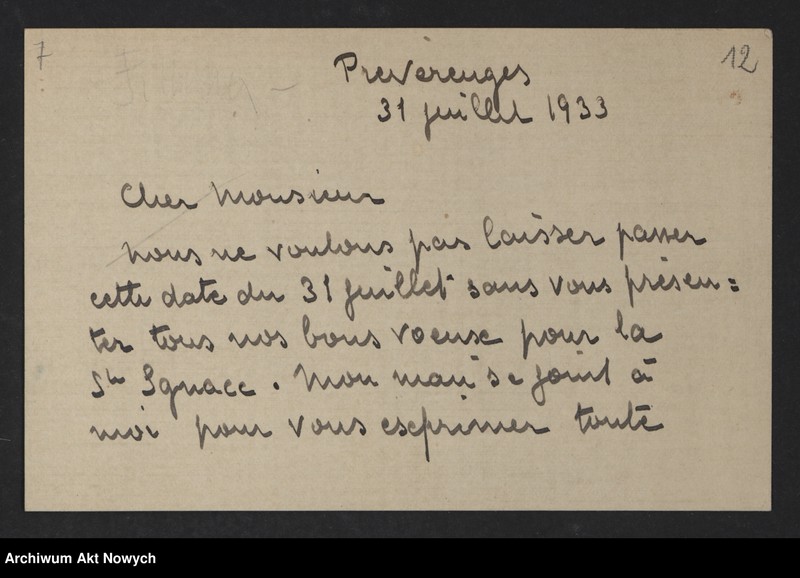 7
12
Préverenges
31 juillet 1933
Cher Monsieur
Nous ne voulons pas laisser passer
cette date du 31 juillet sans vous présen=
ter tous nos bons voeux pour la
Ste Ignace. Mon mari se joint à
moi pour vous exprimer toute
Archiwum Akt Nowych